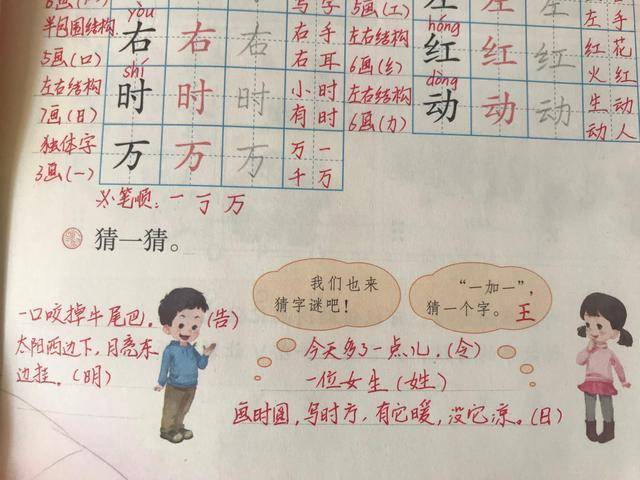 6画
半包围结构
5画(口)
yòu
右 右 右
右手
右耳
左右结构
7画(日)
shí
时 时 时
小时
有时
独体字
3画(一)
万 万 万
万一
千万
笔顺：一 丁 万
写字
5画(工)
左手
左右结构
6画(纟)
hóng
红 红 红
红花
火红
左右结构
6画(力)
dòng
动 动 动
生动
动人
猜一猜。
我们也来
猜字谜吧！
“一加一”，
猜一个字。王
一口咬掉牛尾巴。(告)
太阳西边下，月亮东
边挂。(明)
今天多了一点儿。(令)
一位女生(姓)
画时圆，写时方，有它暖，没它凉。(日)